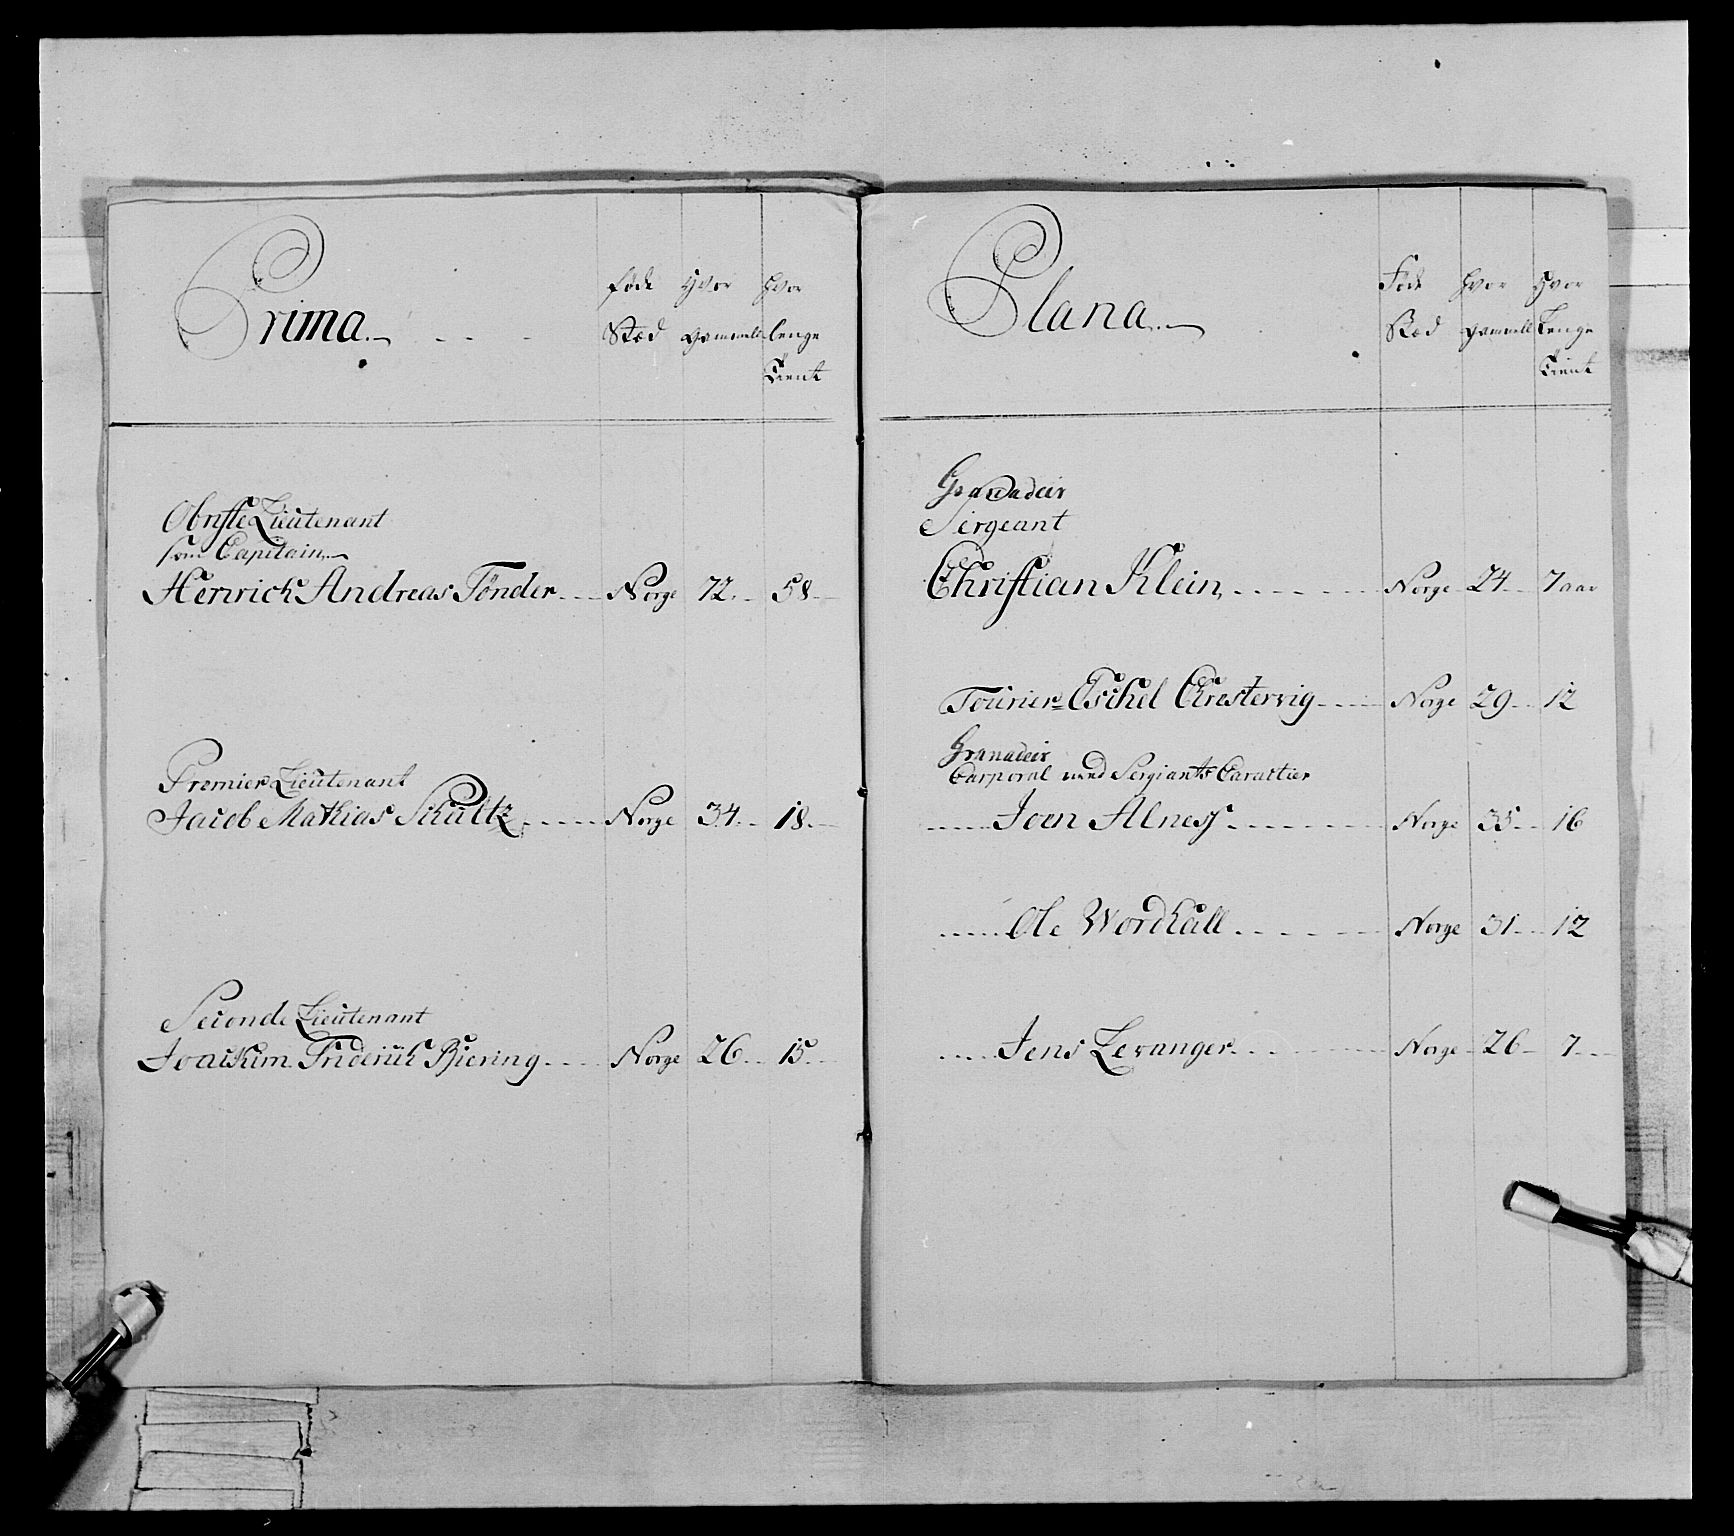 Prima.
føde Hvor Hvor
Stæd gammell lenge
tient
Obriste Lieutenant
som Capitain
Henrich Andreas Tønder Norge 72 58
Premier Lieutenant
Jacob Mathias Schultz Norge 34 18
Seconde Lieutenant
Joachim Friderich Biering Norge 26 15
Plana
Føde Hvor Hvor
Stæd gammell Lenge
tient
Granadeir
Sergeant
Christian Klein Norge 24 7 aar
Fourier Norge 29 12
Granadeir
Carporal med Sergiants Caractier
Joen Alness Norge 35 16
Ole Wordhall Norge 31 12
Jens Levanger Norge 26 7